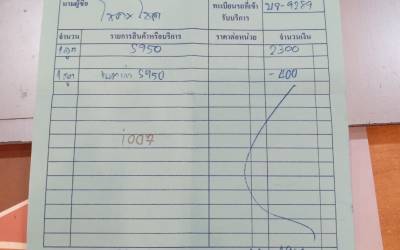 นามผู้ซื้อ
ทะเบียนรถที่เข้ารับบริการ
บร-9289
จำนวน รายการสินค้าหรือบริการ ราคาต่อหน่วย จำนวนเงิน
1 ลูก S950 2300
1 ลูก S950 -400
1007